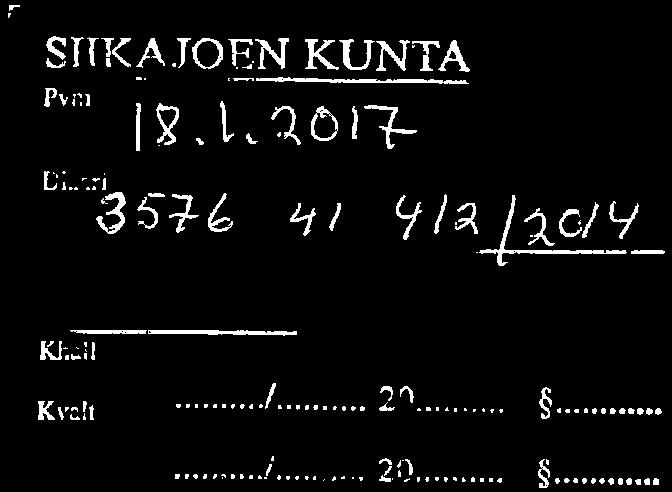 SIIKAJOEN KUNTA
Pvm 18.1.2017
Diaari
3576 41 412/2014
Khall
Kvalt ........../.......... 20.......... §............
........../.......... 20.......... §............